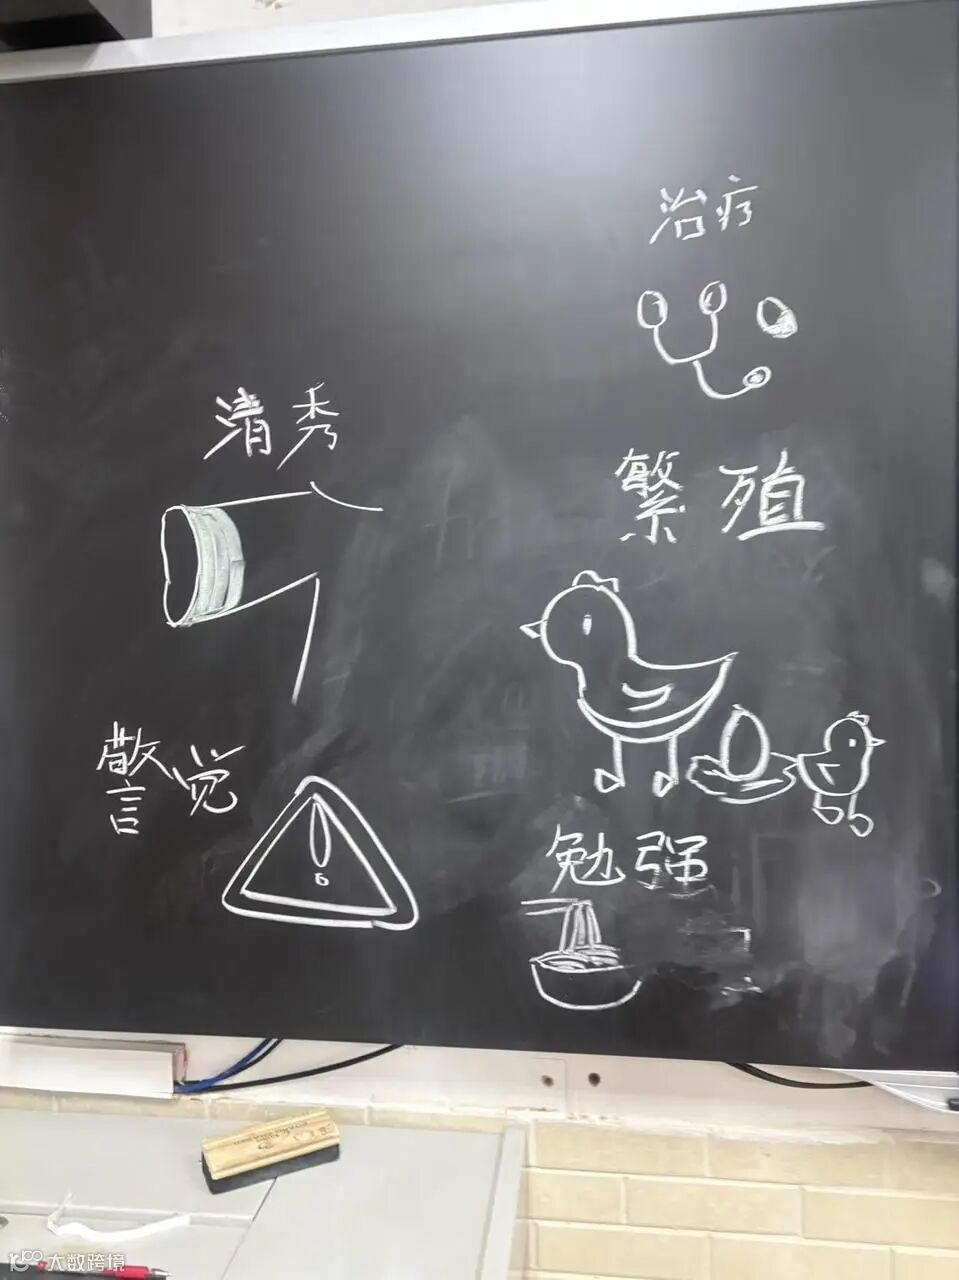 治疗
清秀
繁殖
警觉
勉强
大数跨境